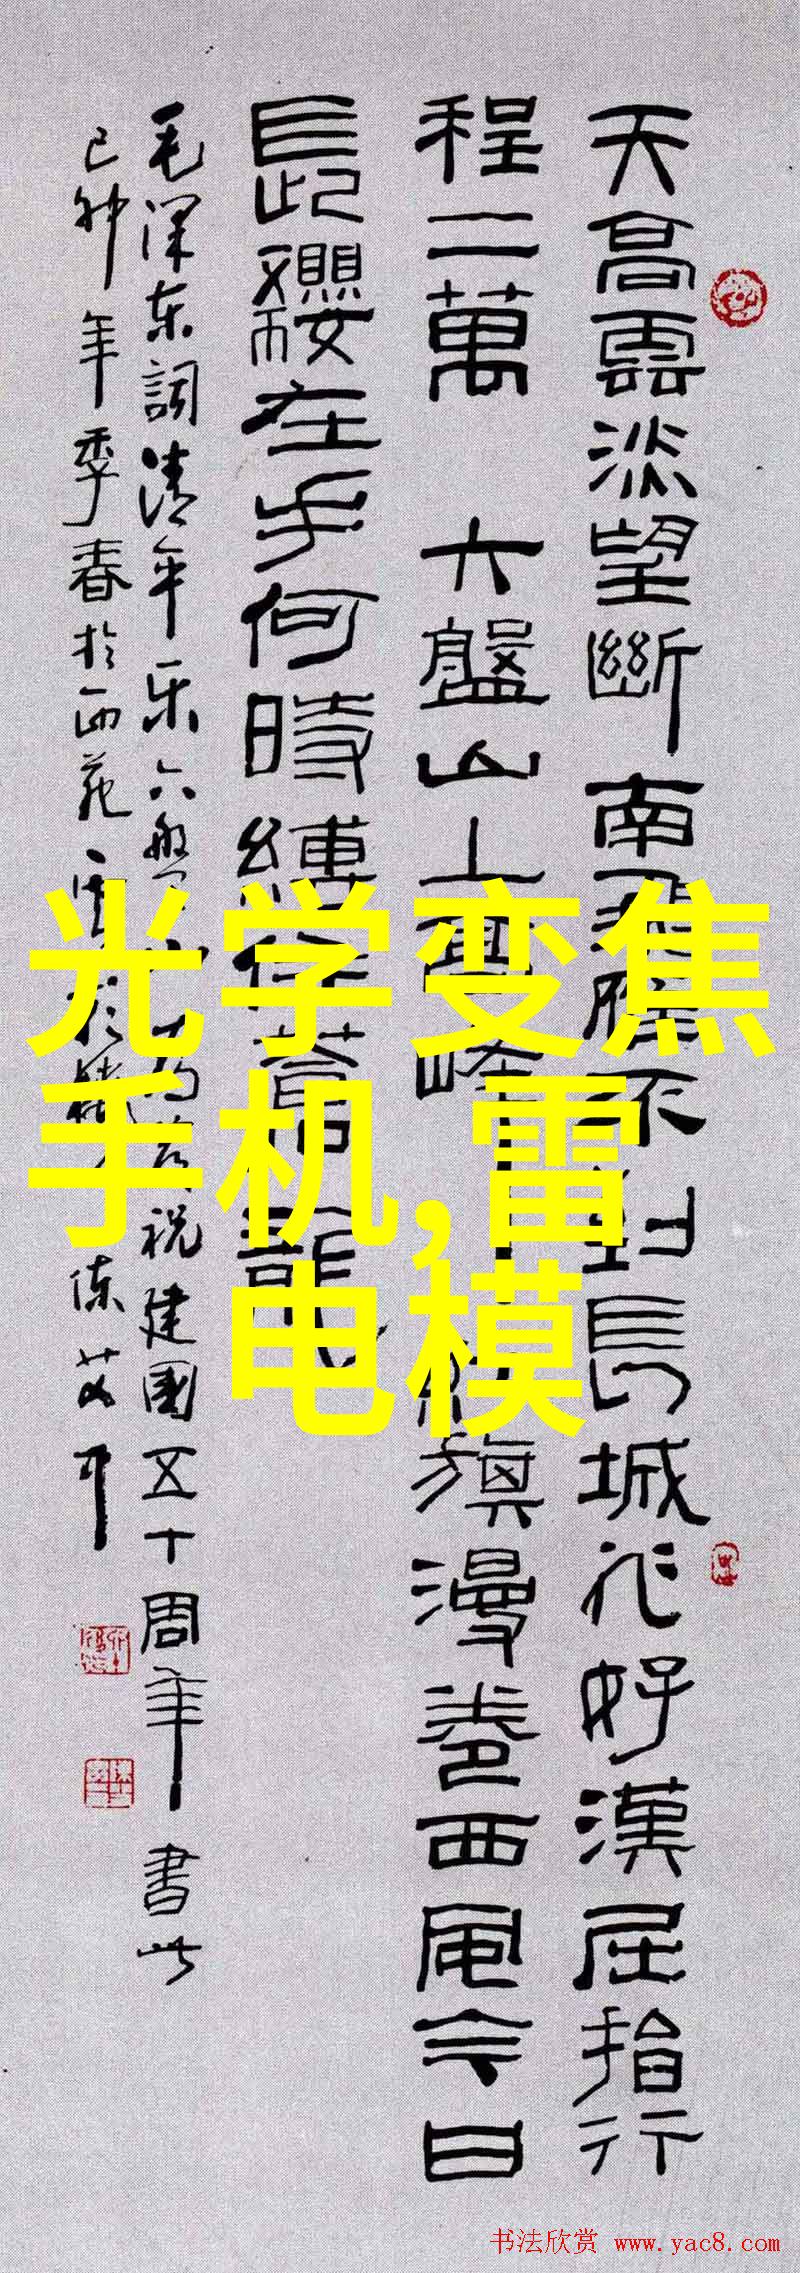 天高雲淡望斷南飛雁不到長城非好漢屈指行
程二萬 六盤山上高峰 旗漫卷西風今日
長纓在手何時縛住蒼龍
毛澤东詞清平乐六盤山 祝建國五十周年書此
己卯年季春於西苑
光学变焦
手机,雷
电模
书法欣赏 www.yac8.com